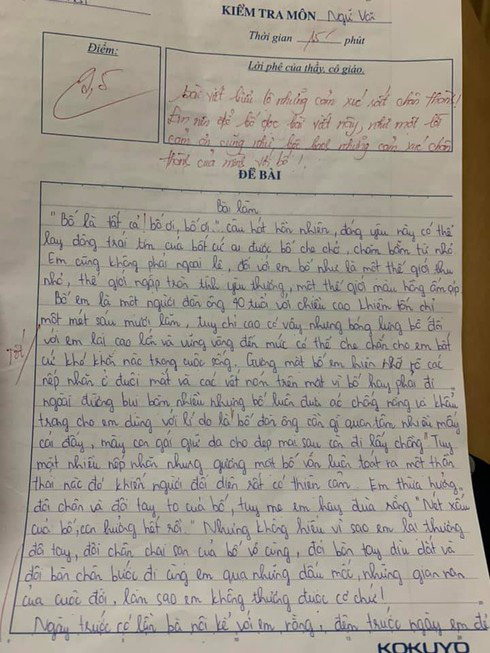 KIỂM TRA MÔN Ngữ Văn
Thời gian 15' phút
Điểm:
9,5
Lời phê của thầy, cô giáo.
bài viết bộc lộ những cảm xúc rất chân thành!
Em nên để bố đọc bài viết này, như một lời
cảm ơn cũng như những cảm xúc chân
thành của mình với bố!
ĐỀ BÀI
Bài làm
"Bố là tất cả! bố ơi, bố ơi..." câu hát hồn nhiên, đáng yêu này có thể
lay động trái tim của bất cứ ai được bố che chở, chăm bẵm từ nhỏ
Em cũng không phải ngoại lệ, đối với em bố như là một thế giới thu
nhỏ, thế giới ngập tràn tình yêu thương, một thế giới màu hồng ấm áp
Bố em là một người đàn ông 40 tuổi với chiều cao khiêm tốn chỉ
một mét sáu mươi lăm, tuy chỉ cao có vậy nhưng bóng lưng bố đối
với em lại cao lớn và vững vàng đến mức có thể che chắn cho em bất
Tốt!
cứ khó khăn nào trong cuộc sống. Gương mặt bố em hiện rõ các
nếp nhăn ở đuôi mắt và các vết nám trên mặt vì bố hay phải đi
ngoài đường bụi bặm nhiều nhưng bố luôn đưa áo chống nắng và khẩu
trang cho em dùng với lí do là "bố đàn ông cần gì quan tâm nhiều mấy
cái đấy, mày con gái giữ da cho đẹp mai sau còn đi lấy chồng" Tuy
mặt nhiều nếp nhăn nhưng gương mặt bố vẫn luôn toát ra một thần
thái nào đó khiến người đối diện rất có thiện cảm. Em thừa hưởng
đôi chân và đôi tay to của bố, tuy mẹ em hay đùa rằng "Nét xấu
của bố, con hưởng hết rồi." Nhưng không hiểu vì sao em lại thương
đôi tay, đôi chân chai sạn của bố vô cùng, đôi bàn tay dìu dắt và
đôi bàn chân bước đi cùng em qua những dấu mốc, những gian nan
của cuộc đời, làm sao em không thương được cơ chứ!
Ngày trước có lần bà nội kể với em rằng, đêm trước ngày em đẻ
KOKUYO